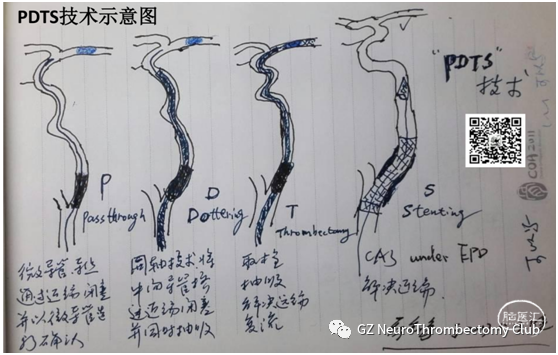 PDTS技术示意图
"PDTS"
技术
P
Passthrough
微导管、导丝
通过近端闭塞
并以微导管造
影确认
D
Dottering
同轴技术将
中间导管接
近远端闭塞
并同时抽吸
T
Thrombectomy
取栓
抽吸
解决远端
血流
S
Stenting
CAS under EPD
解决近端
COA2011
脑医汇
GZ NeuroThrombectomy Club